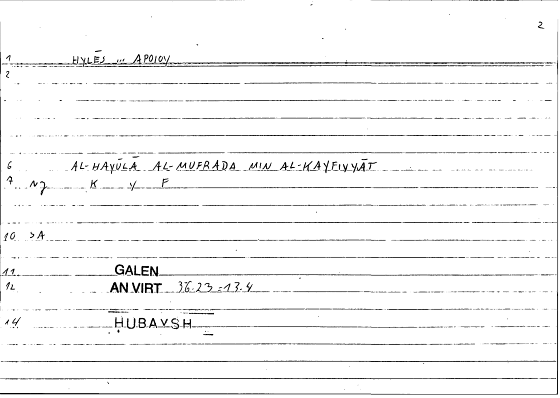 2
1 HYLĒS ... APOIOY
2
6 AL-HAYŪLĀ AL-MUFRADA MIN AL-KAYFIYYĀT
7 NJ K Y F
10 >A
11 GALEN
12 AN VIRT 36.23 = 13.4
14 ḤUBAYSH